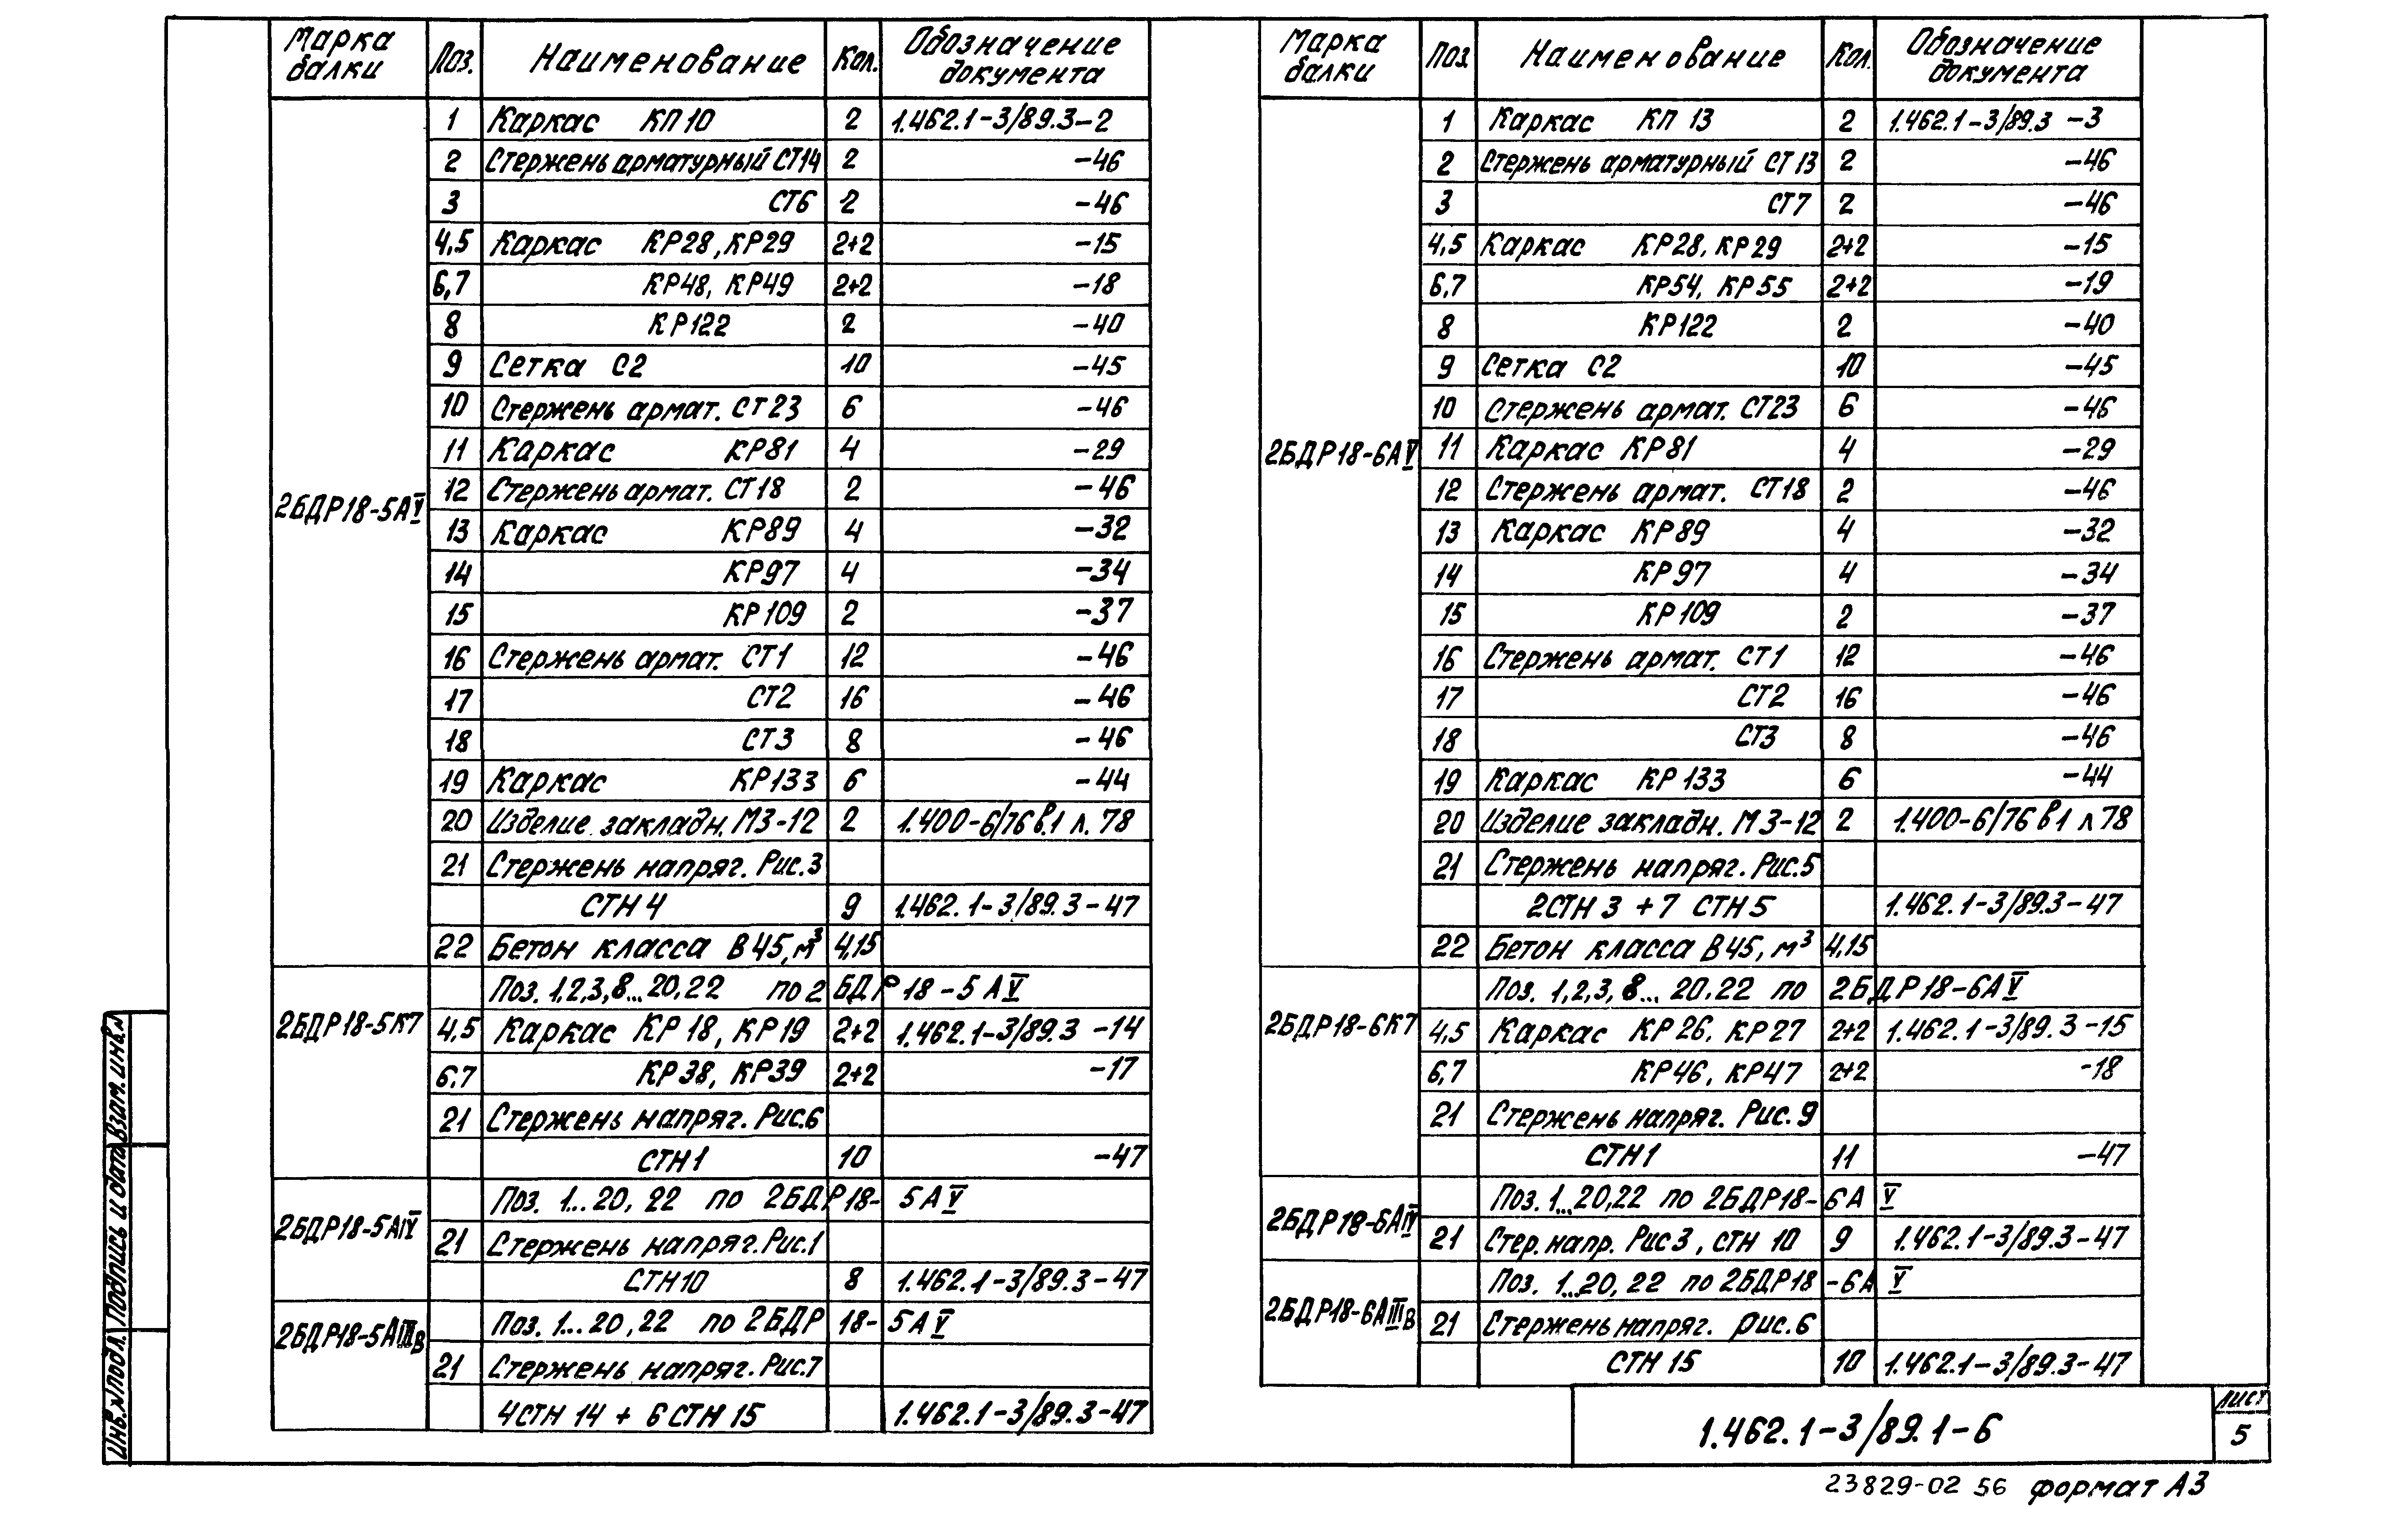 Марка балки Поз. Наименование Кол. Обозначение документа
2БДР18-5АV
1 Каркас КП10 2 1.462.1-3/89.3-2
2 Стержень арматурный СТ14 2 -46
3 СТ6 2 -46
4,5 Каркас КР28, КР29 2+2 -15
6,7 КР48, КР49 2+2 -18
8 КР122 2 -40
9 Сетка С2 10 -45
10 Стержень армат. СТ23 6 -46
11 Каркас КР81 4 -29
12 Стержень армат. СТ18 2 -46
13 Каркас КР89 4 -32
14 КР97 4 -34
15 КР109 2 -37
16 Стержень армат. СТ1 12 -46
17 СТ2 16 -46
18 СТ3 8 -46
19 Каркас КР133 6 -44
20 Изделие закладн. МЗ-12 2 1.400-6/76 в.1 л. 78
21 Стержень напряг. Рис.3
СТН4 9 1.462.1-3/89.3-47
22 Бетон класса В45, м³ 4,15
2БДР18-5К7
Поз. 1,2,3,8...20,22 по 2БДР18-5АV
4,5 Каркас КР18, КР19 2+2 1.462.1-3/89.3-14
6,7 КР38, КР39 2+2 -17
21 Стержень напряг. Рис.6
СТН1 10 -47
2БДР18-5АIV
Поз. 1...20, 22 по 2БДР18-5АV
21 Стержень напряг. Рис.1
СТН10 8 1.462.1-3/89.3-47
2БДР18-5АIIIв
Поз. 1...20, 22 по 2БДР18-5АV
21 Стержень напряг. Рис.7
4СТН14 + 6СТН15 1.462.1-3/89.3-47
Марка балки Поз. Наименование Кол. Обозначение документа
2БДР18-6АV
1 Каркас КП13 2 1.462.1-3/89.3-3
2 Стержень арматурный СТ13 2 -46
3 СТ7 2 -46
4,5 Каркас КР28, КР29 2+2 -15
6,7 КР54, КР55 2+2 -19
8 КР122 2 -40
9 Сетка С2 10 -45
10 Стержень армат. СТ23 6 -46
11 Каркас КР81 4 -29
12 Стержень армат. СТ18 2 -46
13 Каркас КР89 4 -32
14 КР97 4 -34
15 КР109 2 -37
16 Стержень армат. СТ1 12 -46
17 СТ2 16 -46
18 СТ3 8 -46
19 Каркас КР133 6 -44
20 Изделие закладн. МЗ-12 2 1.400-6/76 в1 л78
21 Стержень напряг. Рис.5
2СТН3 + 7 СТН5 1.462.1-3/89.3-47
22 Бетон класса В45, м³ 4,15
2БДР18-6К7
Поз. 1,2,3,8...20,22 по 2БДР18-6АV
4,5 Каркас КР26, КР27 2+2 1.462.1-3/89.3-15
6,7 КР46, КР47 2+2 -18
21 Стержень напряг. Рис.9
СТН1 11 -47
2БДР18-6АIV
Поз. 1...20,22 по 2БДР18-6АV
21 Стер. напр. Рис 3, СТН 10 9 1.462.1-3/89.3-47
2БДР18-6АIIIв
Поз. 1...20, 22 по 2БДР18-6АV
21 Стержень напряг. рис.6
СТН15 10 1.462.1-3/89.3-47
Инв.№подл. Подпись и дата Взам.инв.№
1.462.1-3/89.1-6
Лист
5
23829-02 56 формат А3